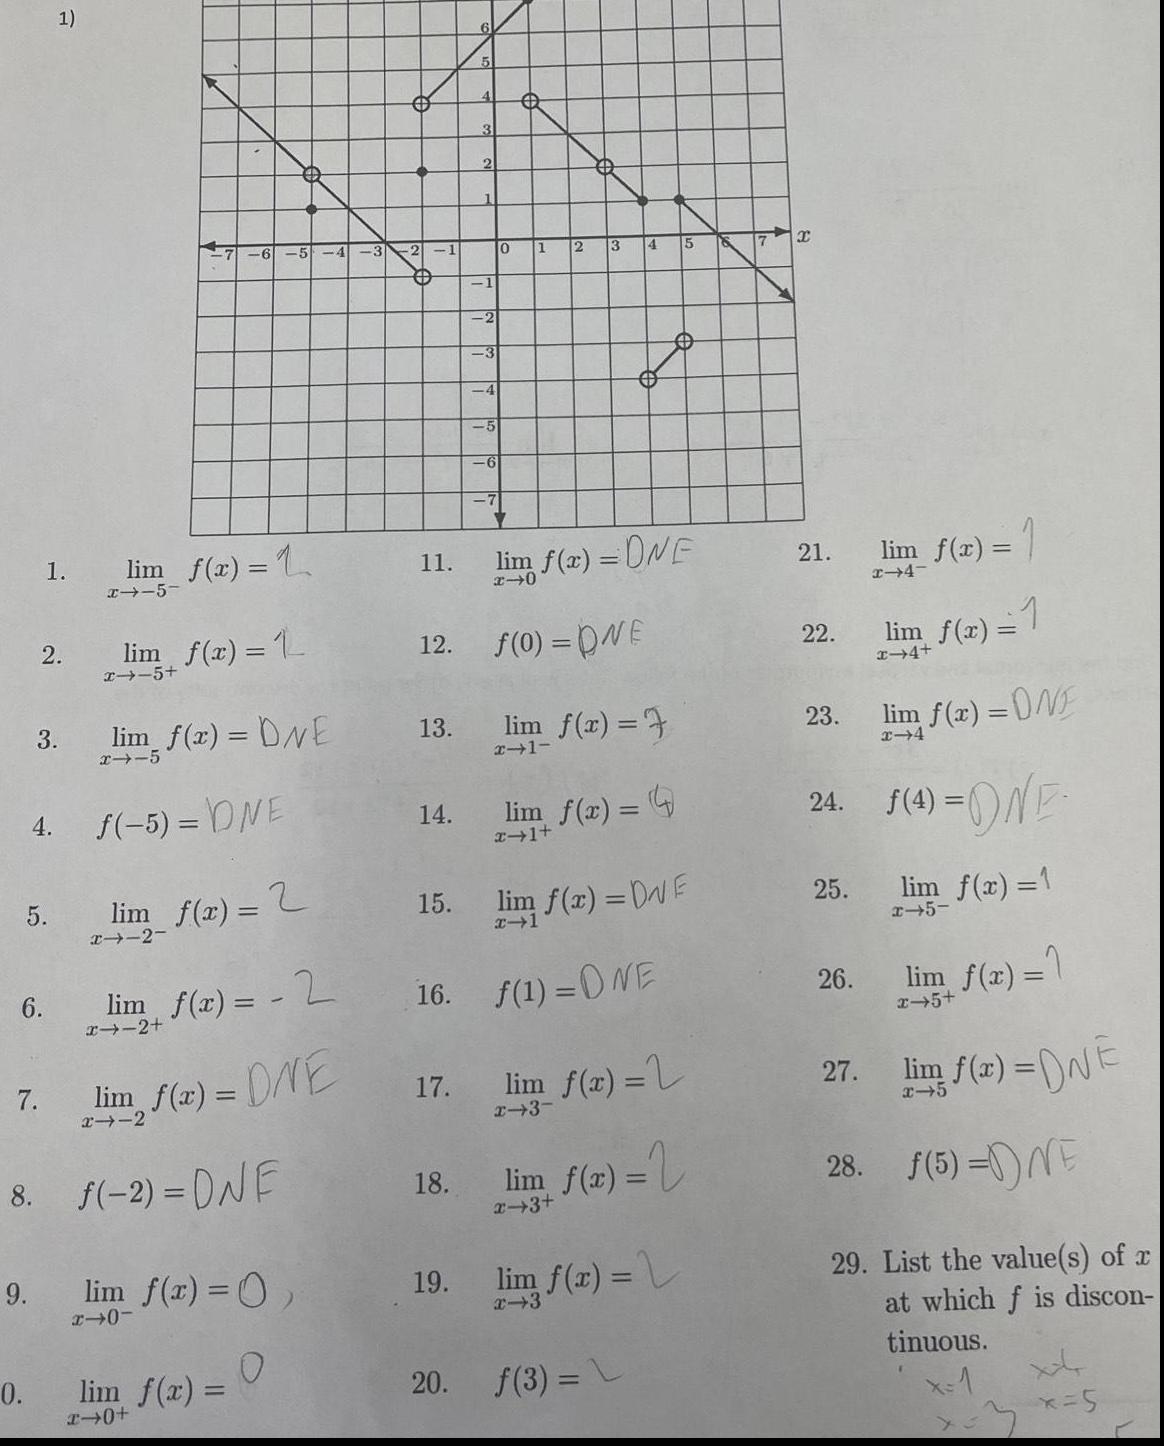 1)
6
5
4
3
2
1
-7 -6 -5 -4 -3 -2 -1 0 1 2 3 4 5 6 7 x
-1
-2
-3
-4
-5
-6
-7
1. lim x→-5⁻ f(x) = 2
2. lim x→-5⁺ f(x) = 2
3. lim x→-5 f(x) = DNE
4. f(-5) = DNE
5. lim x→-2⁻ f(x) = 2
6. lim x→-2⁺ f(x) = -2
7. lim x→-2 f(x) = DNE
8. f(-2) = DNE
9. lim x→0⁻ f(x) = 0
0. lim x→0⁺ f(x) = 0
11. lim x→0 f(x) = DNE
12. f(0) = DNE
13. lim x→1⁻ f(x) = 7
14. lim x→1⁺ f(x) = 4
15. lim x→1 f(x) = DNE
16. f(1) = DNE
17. lim x→3⁻ f(x) = 2
18. lim x→3⁺ f(x) = 2
19. lim x→3 f(x) = 2
20. f(3) = 2
21. lim x→4⁻ f(x) = 1
22. lim x→4⁺ f(x) = 1
23. lim x→4 f(x) = DNE
24. f(4) = DNE
25. lim x→5⁻ f(x) = 1
26. lim x→5⁺ f(x) = 1
27. lim x→5 f(x) = DNE
28. f(5) = DNE
29. List the value(s) of x
at which f is discon-
tinuous.
x=1
x=3 x=5